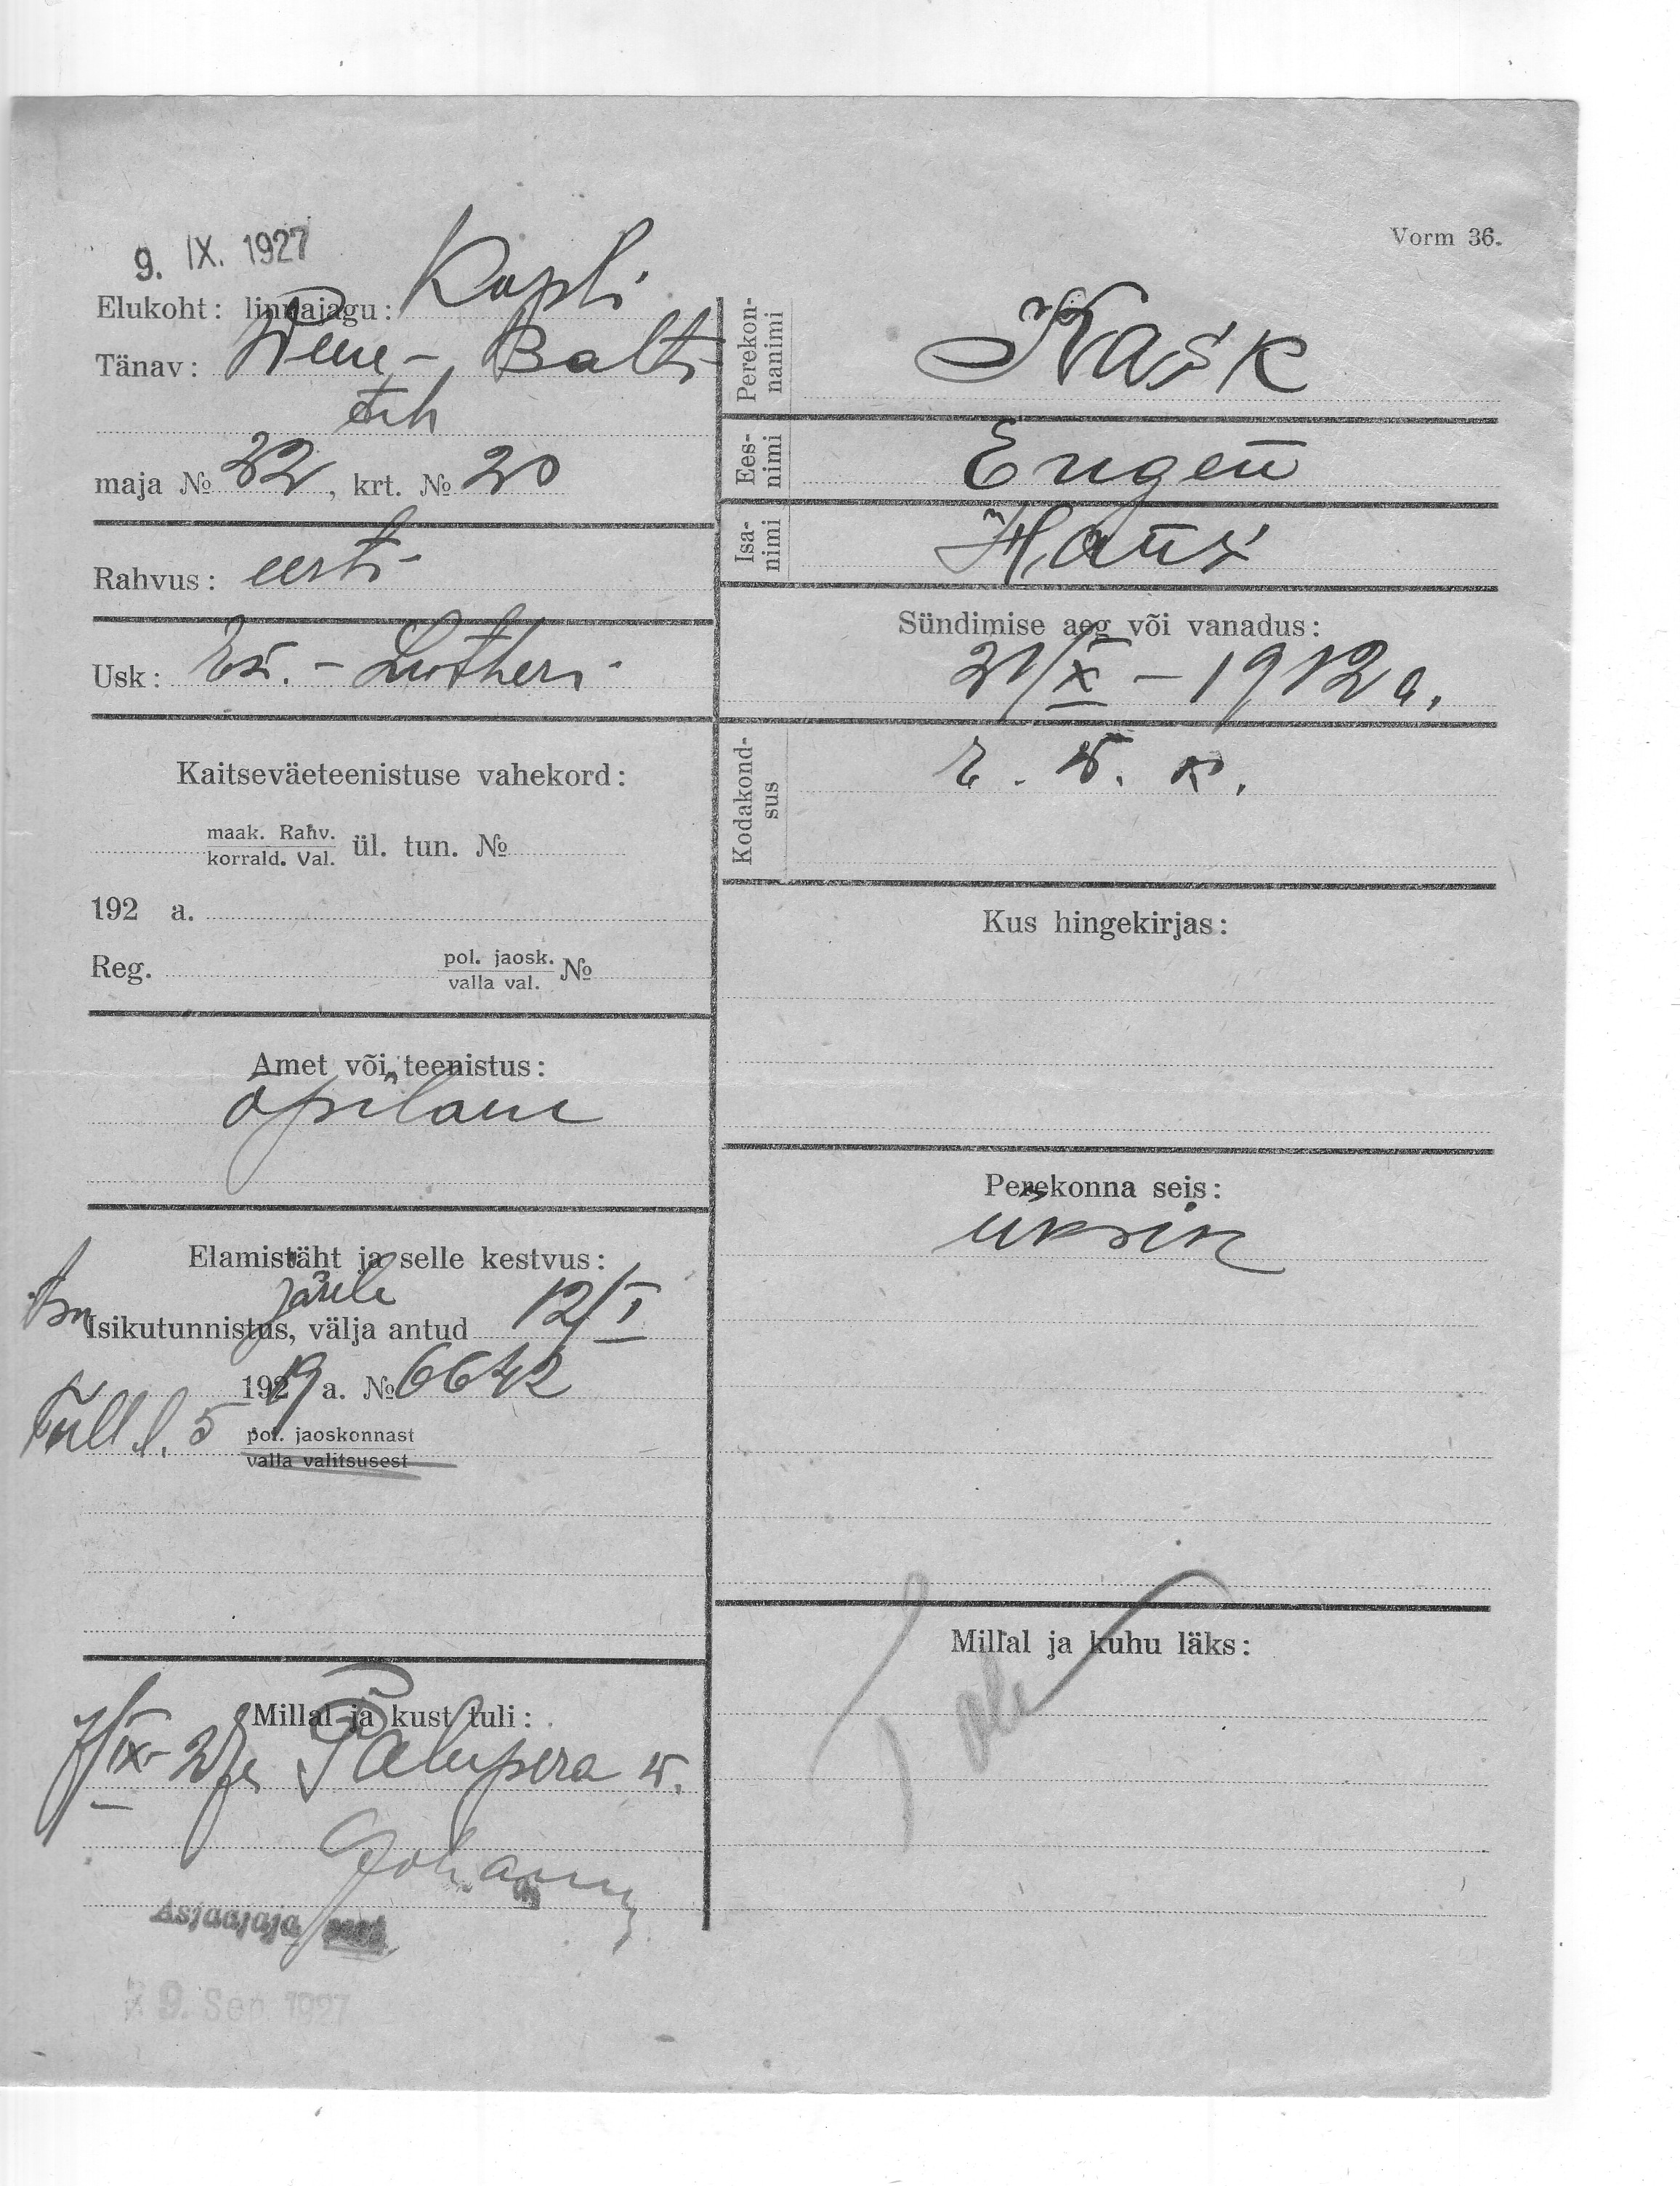 Vorm 36.
9. IX. 1927
Elukoht: linnajagu: Kopli
Tänav: Wene-Balti
teh
maja № 32, krt. № 20
Rahvus: eesti
Usk: Ew.-Lutheri
Kaitseväeteenistuse vahekord:
maak. Rahv.
korrald. Val. ül. tun. №
192 a.
Reg. pol. jaosk.
valla val. №
Amet või teenistus:
õpilane
Elamistäht ja selle kestvus:
järele
Isikutunnistus, välja antud 12/I
1919 a. № 6642
Tall. l. 5 pol. jaoskonnast
valla valitsusest
Millal ja kust tuli:
7/IX-27a Palupera w.
Asjaajaja
29. Sep. 1927
Perekon-
nanimi
Kask
Ees-
nimi
Eugen
Isa-
nimi
Hans
Sündimise aeg või vanadus:
21/X-1912 a.
Kodakond-
sus
E. w. k.
Kus hingekirjas:
Perekonna seis:
üksik
Millal ja kuhu läks: